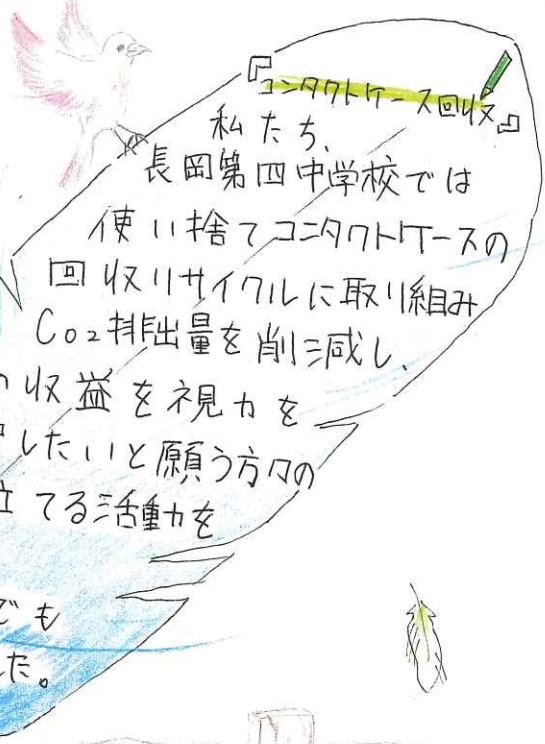 『コンタクトケース回収』
私たち、
長岡第四中学校では
使い捨てコンタクトケースの
回収リサイクルに取り組み
Co₂排出量を削減し、
収益を視力を
したいと願う方々の
てる活動を
でも
た。